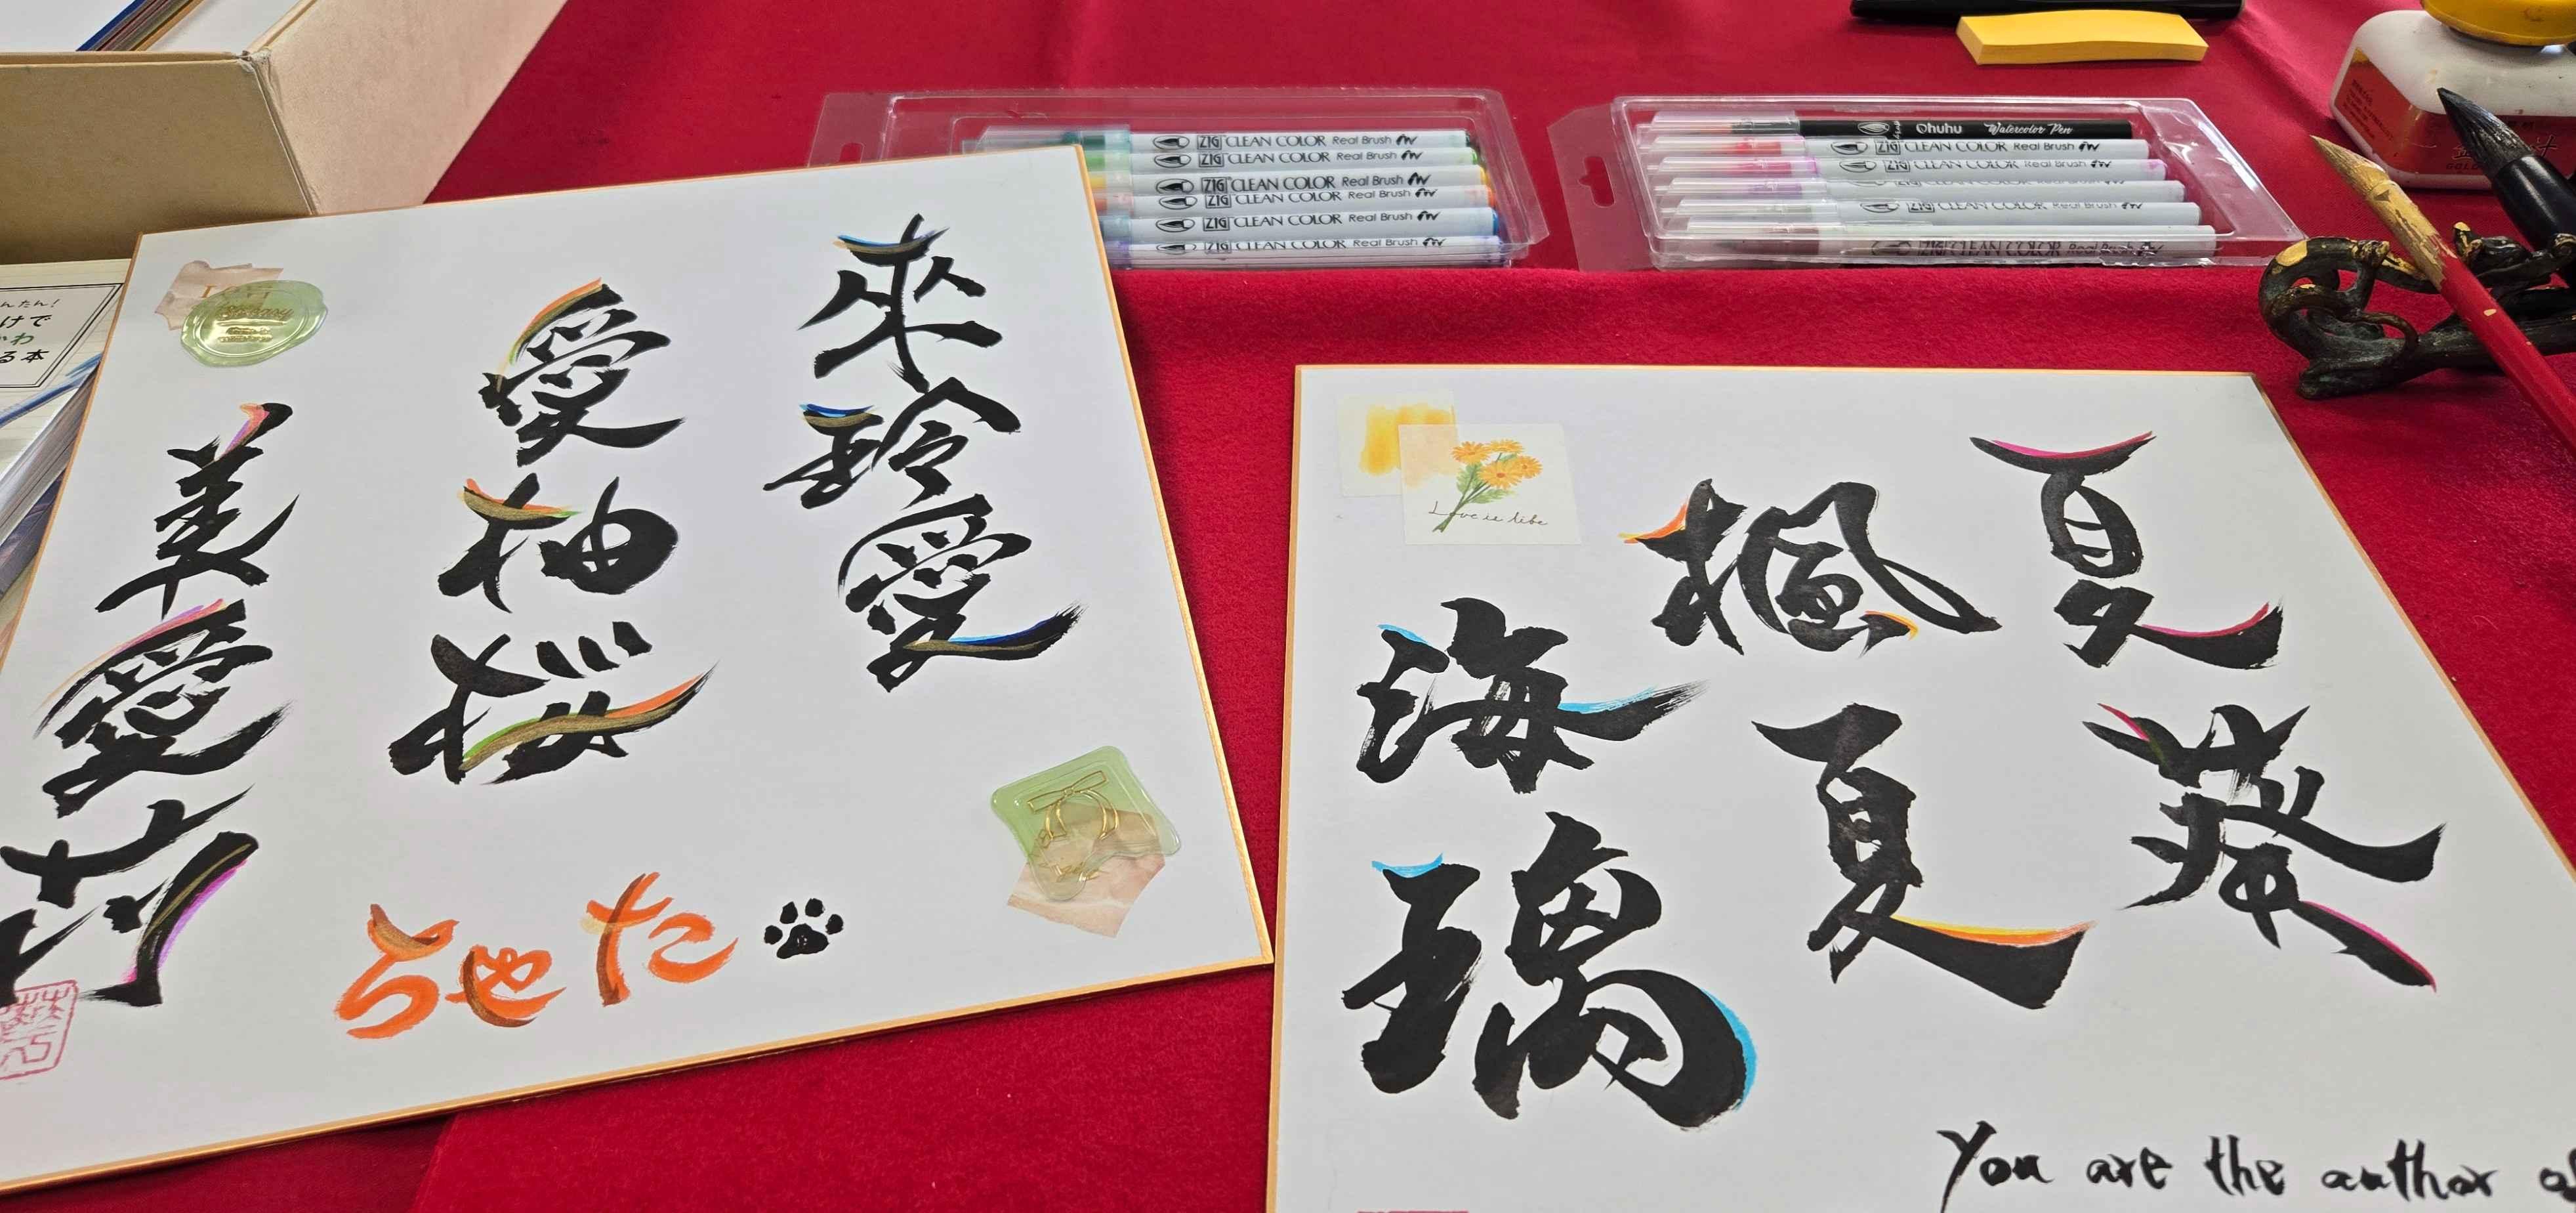 來玲愛
愛柚桜
美愛花
たやら
夏葵
楓夏
海璃
You are the author
Love is life
ZIG CLEAN COLOR Real Brush
ZIG CLEAN COLOR Real Brush
ZIG CLEAN COLOR Real Brush
ZIG CLEAN COLOR Real Brush
ZIG CLEAN COLOR Real Brush
ZIG CLEAN COLOR Real Brush
Ohuhu Watercolor Pen
ZIG CLEAN COLOR Real Brush
ZIG CLEAN COLOR Real Brush
ZIG CLEAN COLOR Real Brush
ZIG CLEAN COLOR Real Brush
んたん!
けで
かわ
る本